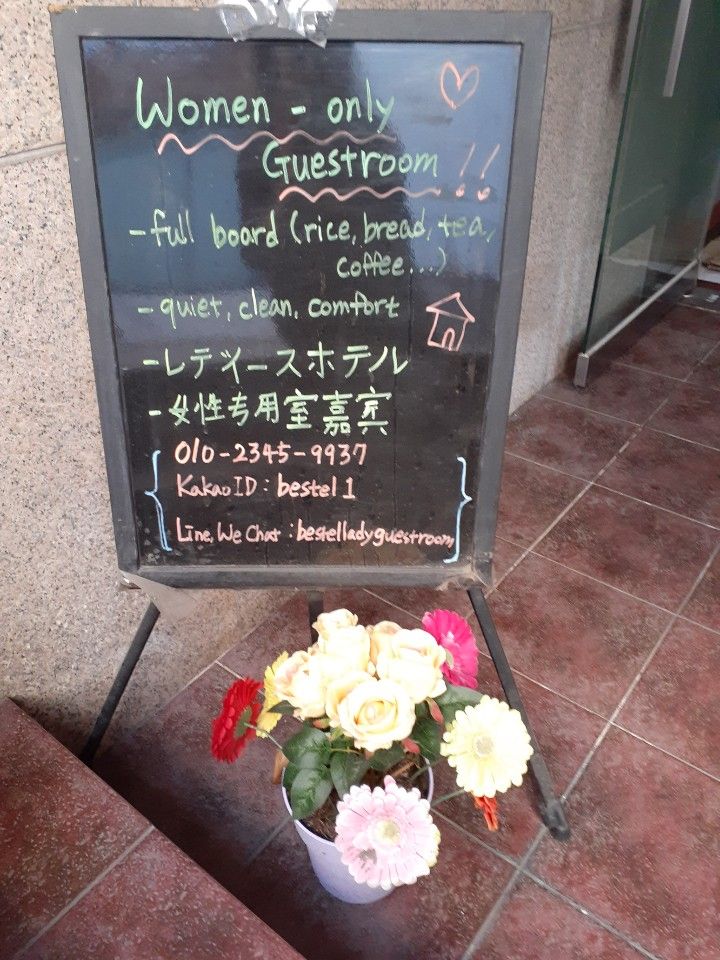 Women - only
Guestroom !!
- full board (rice, bread, tea,
coffee...)
- quiet, clean, comfort
- レディースホテル
- 女性专用室嘉宾
010-2345-9937
Kakao ID : bestel 1
Line, We Chat : bestelladyguestroom